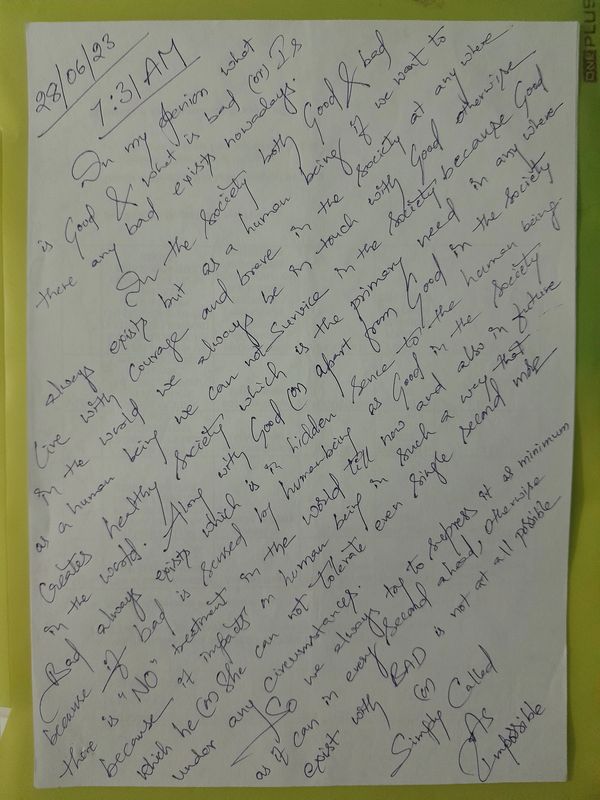 28/06/23
7:31 AM
In my openion what
is Good & what is bad (or) Is
there any bad exists nowadays.
In the Society both Good & bad
always exists but as a human being if we want to
live with courage and brave in the Society at any where
in the world we always be in touch with Good otherwise
as a human being we can not survice in the Society because Good
Creates healthy Society which is the primary need in any where
in the world. Along with Good (or) apart from Good in the Society
Bad always exists which is in hidden Sence to the human being
because if bad is sensed by humanbeing as Good in the Society
there is "NO" treatment in the world till now and also in future
because it impacts on human being in such a way that
which he (or) She can not tolerate even single second more
under any circumstances.
So we always try to supress it as minimum
as it can in every second ahead, otherwise
exist with BAD is not at all possible
(or)
Simply Called
As
Impossible
ONEPLUS